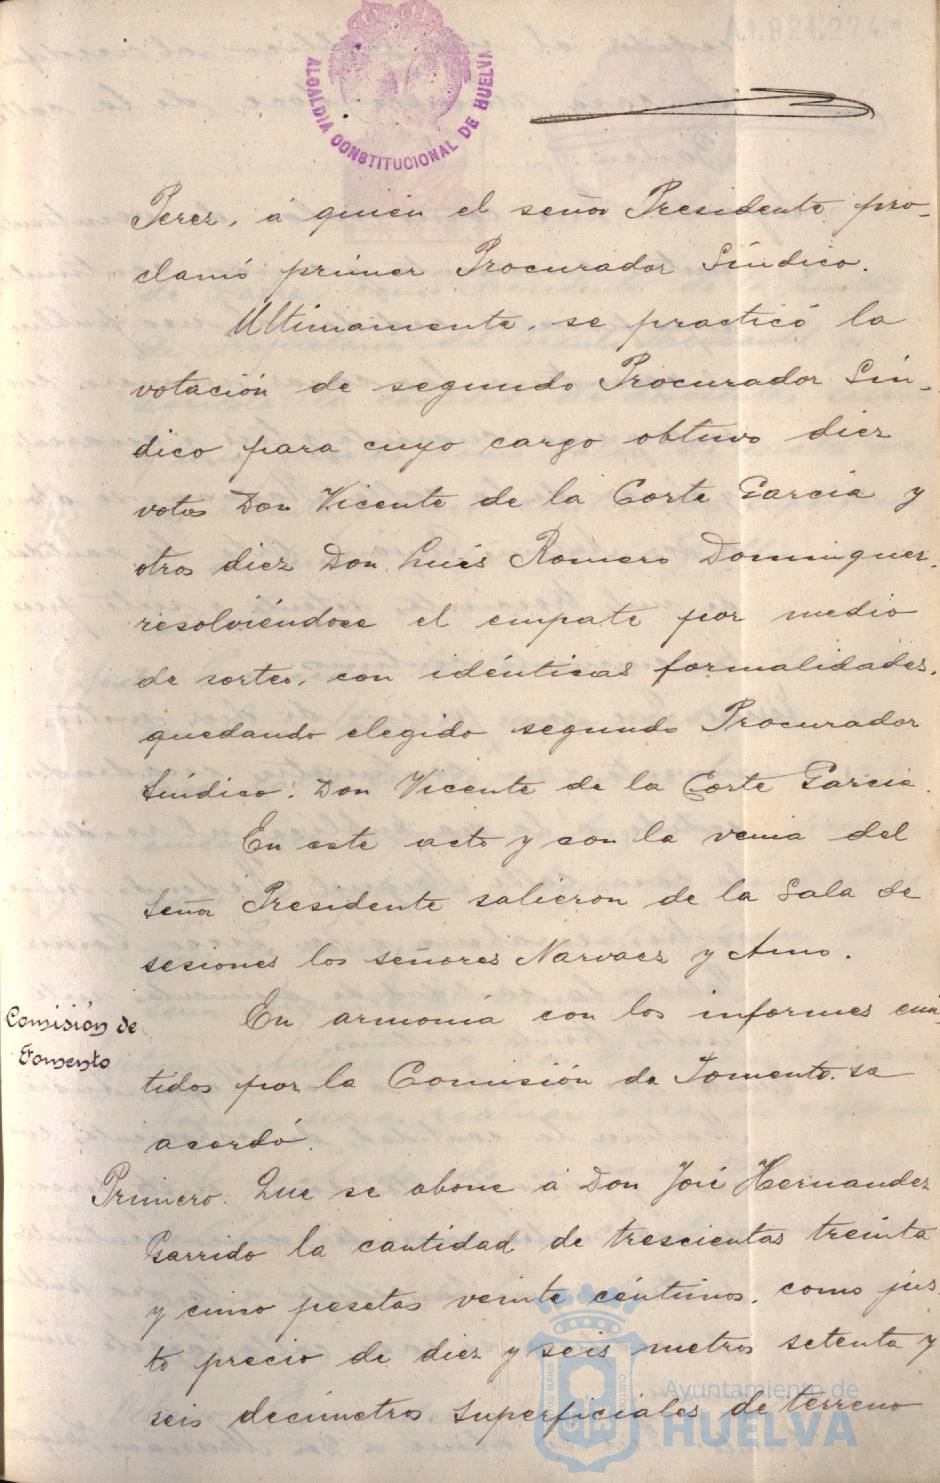 A.1.921.274
ALCALDIA CONSTITUCIONAL DE HUELVA
Perez, á quien el señor Presidente pro-
clamó primer Procurador Síndico.
Ultimamente, se practicó la
votación de segundo Procurador Sín-
dico para cuyo cargo obtuvo diez
votos Don Vicente de la Corte García y
otros diez Don Luis Romero Dominguez,
resolviéndose el empate por medio
de sorteo, con idénticas formalidades,
quedando elegido segundo Procurador
Síndico, Don Vicente de la Corte Garcia.
En este acto y con la venia del
Señor Presidente salieron de la Sala de
sesiones los señores Narvaez y Amo.
Comisión de
Fomento
En armonía con los informes emi-
tidos por la Comisión de Fomento, se
acordó.
Primero. Que se abone á Don José Hernandez
Garrido la cantidad de trescientas treinta
y cinco pesetas veinte céntimos, como jus-
to precio de diez y seis metros setenta y
seis decímetros superficiales de terreno
Ayuntamiento de
HUELVA